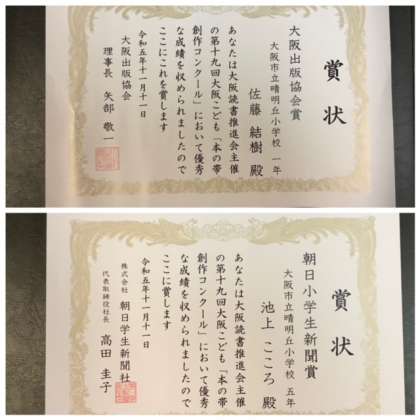 賞状
大阪出版協会賞
大阪市立晴明丘小学校 一年
佐藤 結樹 殿
あなたは大阪読書推進会主催
の第十九回大阪こども「本の帯
創作コンクール」において優秀
な成績を収められましたので
ここにこれを賞します
令和五年十一月十一日
大阪出版協会
理事長 矢部 敬一
賞状
朝日小学生新聞賞
大阪市立晴明丘小学校 五年
池上 こころ 殿
あなたは大阪読書推進会主催
の第十九回大阪こども「本の帯
創作コンクール」において優秀
な成績を収められましたので
ここに賞します
令和五年十一月十一日
株式会社 朝日学生新聞社
代表取締役社長 高田 圭子